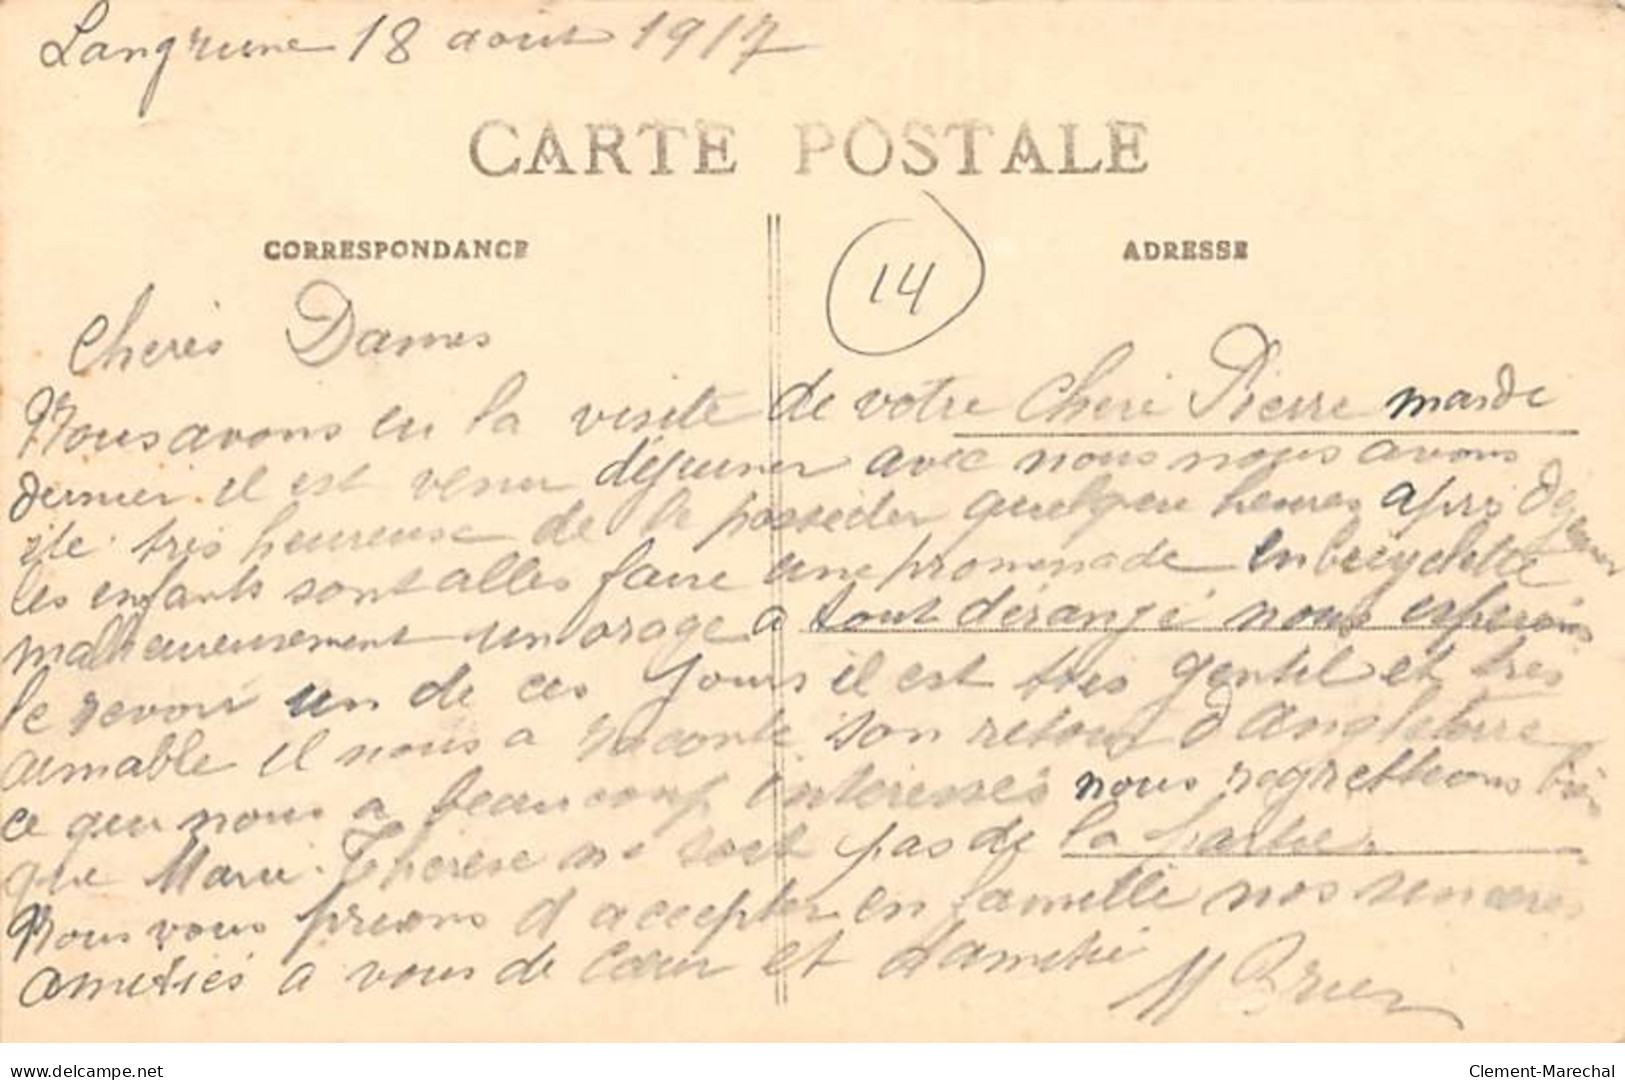 Langrune 18 aout 1917
CARTE POSTALE
CORRESPONDANCE
ADRESSE
14
Cheres Dames
Nous avons eu la visite de votre cheri Pierre marde
dernier il est venu déjeuner avec nous nous avons
ete tres heureuse de le posseder quelque heures apres dejeuner
les enfants sont alles faire une promenade en bicyclette
malheureusement un orage a tout dérangé nous esperons
le revoir un de ces jours il est tres gentil et tres
aimable il nous a raconte son retour d'angleterre
ce que nous a beaucoup interessés nous regrettions bien
que Marie-Therese ne soit pas de la partie.
Nous vous prions d'accepter en famille nos sinceres
amitiés a vous de cœur et d'amitié
M Brier
delcampe.net
Clement-Marechal